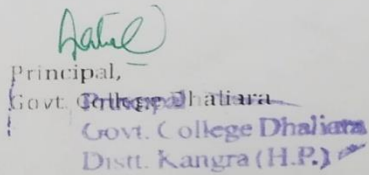 Principal,
Govt. College Dhaliara
Principal
Govt. College Dhaliara
Distt. Kangra (H.P.)